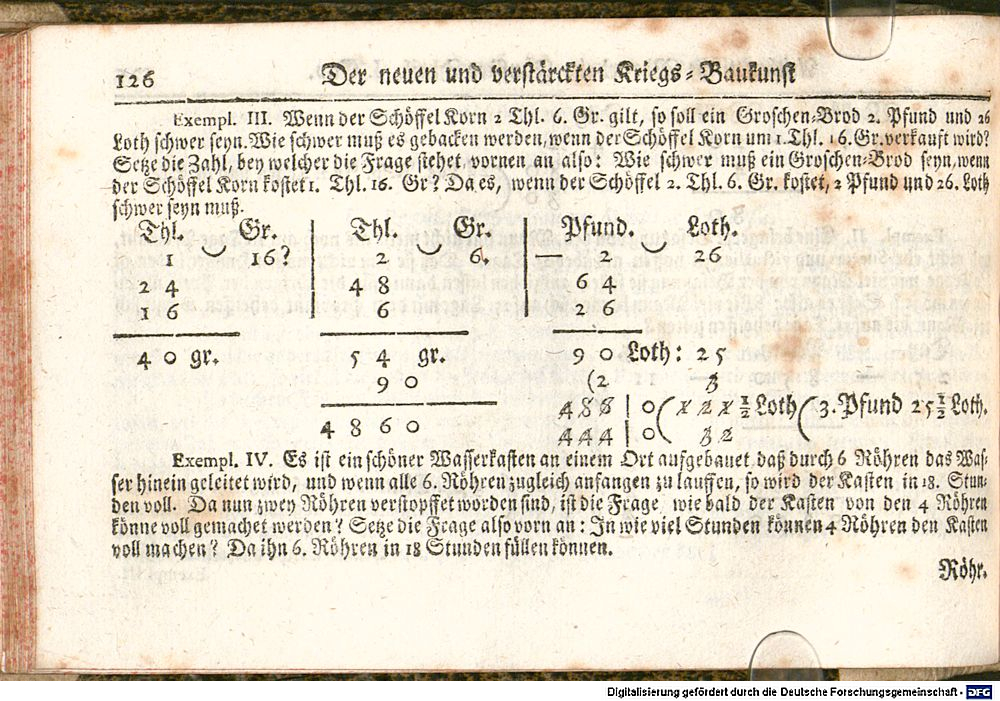 126 Der neuen und verstärckten Kriegs-Baukunst
Exempl. III. Wenn der Schöffel Korn 2 Thl. 6. Gr. gilt, so soll ein Groschen-Brod 2. Pfund und 26
Loth schwer seyn. Wie schwer muß es gebacken werden, wenn der Schöffel Korn um 1. Thl. 16. Gr. verkauft wird?
Setze die Zahl, bey welcher die Frage stehet, vornen an also: Wie schwer muß ein Groschen-Brod seyn, wenn
der Schöffel Korn kostet 1. Thl. 16. Gr? Da es, wenn der Schöffel 2. Thl. 6. Gr. kostet, 2 Pfund und 26. Loth
schwer seyn muß.
Thl. Gr. | Thl. Gr. | Pfund. Loth.
1 16? | 2 6. | — 2 26
24 | 48 | 64
16 | 6 | 26
40 gr. 54 gr. 90 Loth: 25
90 (2 3
488 | 0 ( 121 ½ Loth ( 3. Pfund 25 ½ Loth.
4860 444 | 0 ( 32
Exempl. IV. Es ist ein schöner Wasserkasten an einem Ort aufgebauet, daß durch 6 Röhren das Was-
ser hinein geleitet wird, und wenn alle 6. Röhren zugleich anfangen zu lauffen, so wird der Kasten in 18. Stun-
den voll. Da nun zwey Röhren verstopffet worden sind, ist die Frage, wie bald der Kasten von den 4 Röhren
könne voll gemachet werden? Setze die Frage also vorn an: In wie viel Stunden können 4 Röhren den Kasten
voll machen? Da ihn 6. Röhren in 18 Stunden füllen können.
Röhr.
Digitalisierung gefördert durch die Deutsche Forschungsgemeinschaft - DFG